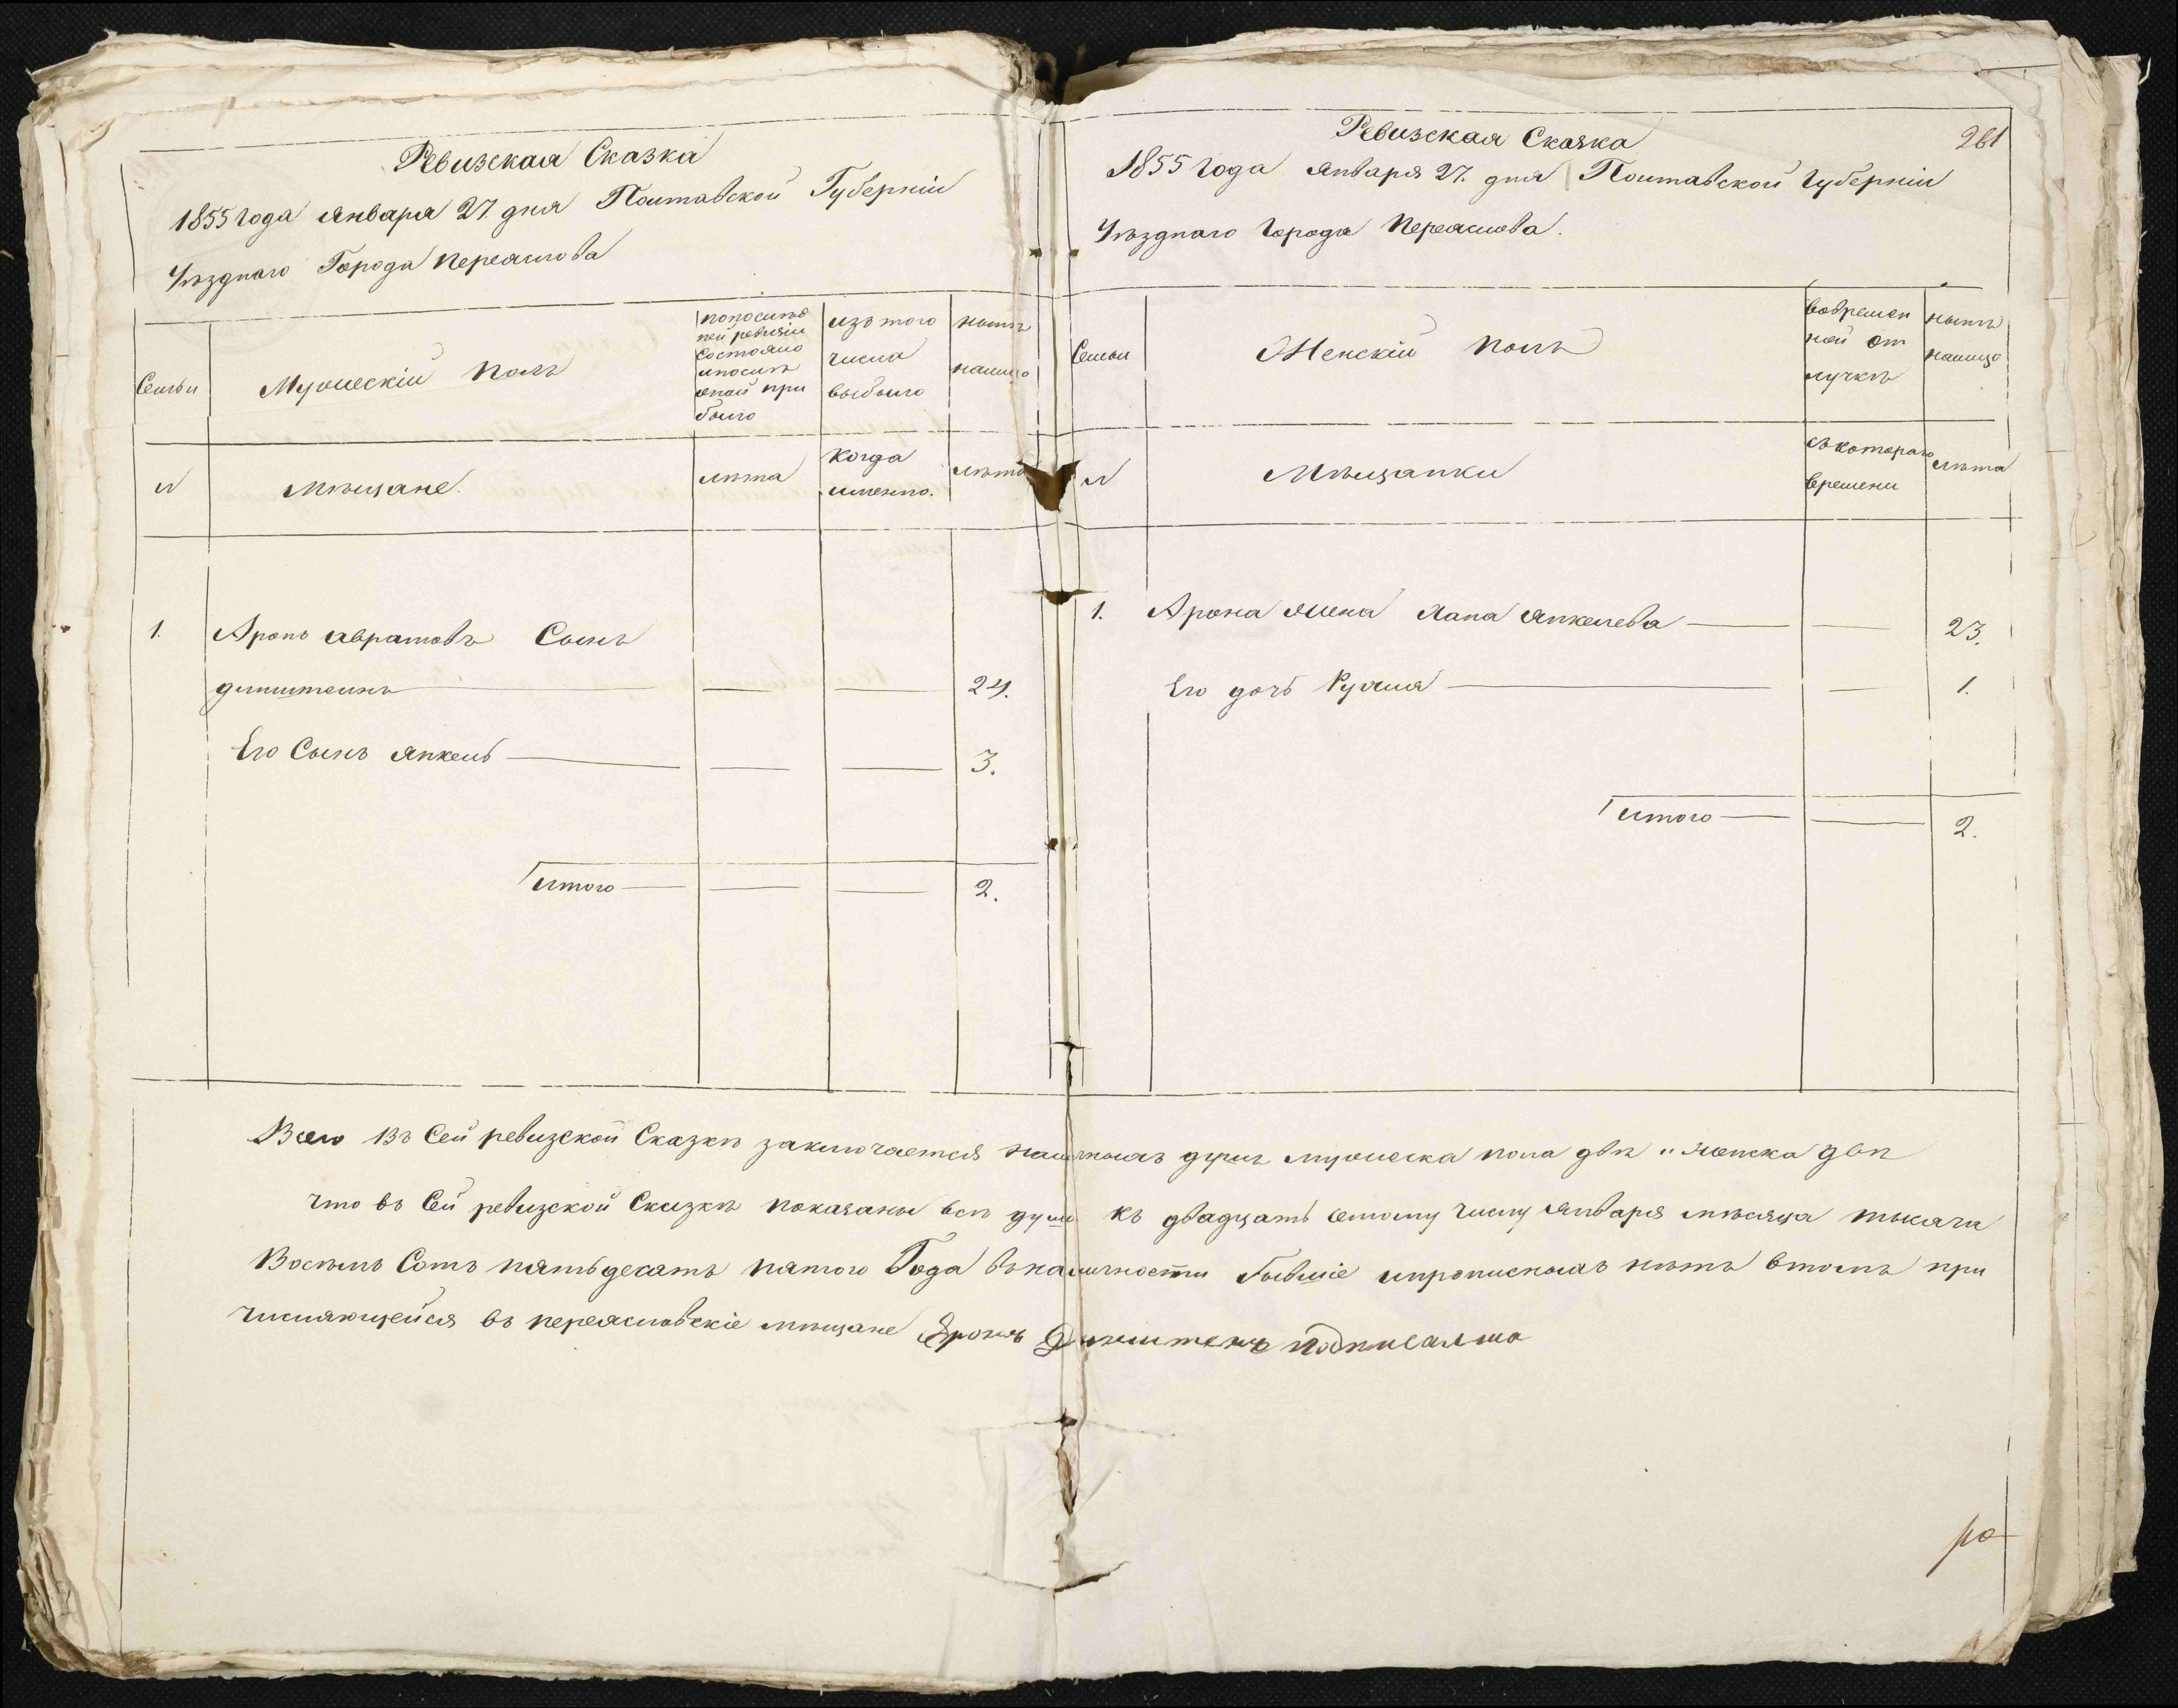 Ревизская Сказка
1855 года Января 27. дня Полтавской Губерніи
Уѣзднаго Города Переяслова
Семьи
Мужескій полъ
попослѣд
ней ревизіи
состояло
ипослѣ
оной при
было
изътого
числа
выбыло
нынѣ
налицо
№
Мѣщане.
лѣта
когда
именно.
лѣта
1.
Аронъ Аврамовъ Сынъ
динштейнъ
24.
Его Сынъ Янкель
3.
итого
2.
261
Ревизская Сказка
1855 года Января 27. дня Полтавской Губерніи
Уѣзднаго Города Переяслова.
Семьи
Женскій полъ
вовремен
ной от
лучкѣ
нынѣ
налицо
№
Мѣщанки
съкотораго
времени
лѣта
1.
Арона жена Хана Янкелева
23.
Его дочь
1.
итого
2.
Всего въ Сей ревизской Сказкѣ заключается наличныхъ душъ мужеска пола двѣ " женска двѣ
что въ Сей ревизской Сказкѣ показаны всѣ души къ двадцать семому числу Января мѣсяца тысяча
Восемь Сотъ пятьдесатъ пятого Года въналичности бывшіе ипрописныхъ нѣтъ втомъ при
числяющейся въ переясловскіе мѣщане Аронъ Динштенъ